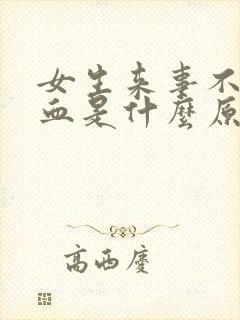 女生来事不
血是什麼原
高西慶